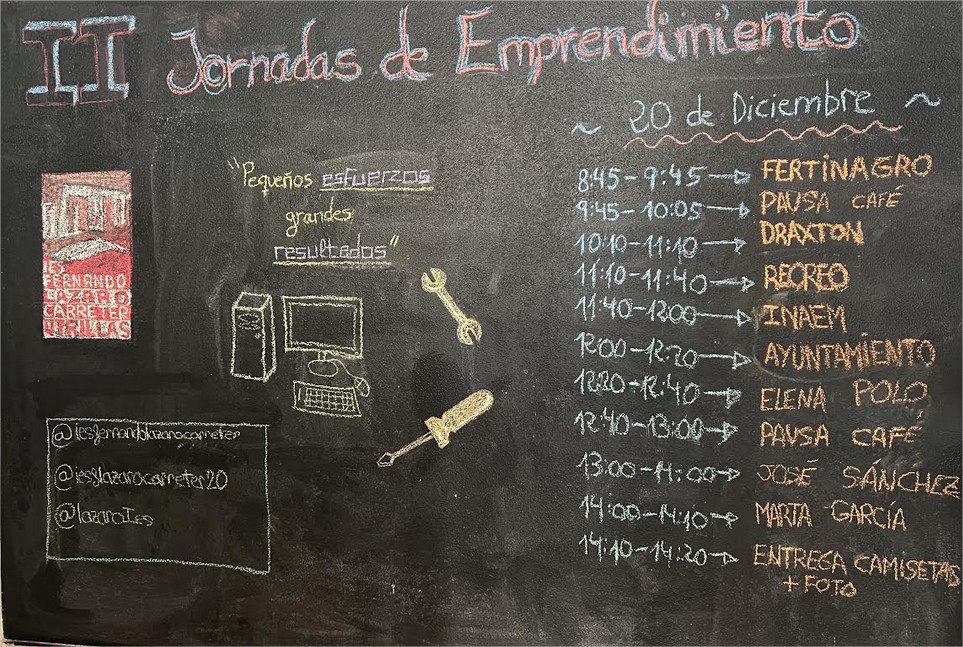 II Jornadas de Emprendimiento
~ 20 de Diciembre ~
"Pequeños esfuerzos
grandes
resultados"
IES
FERNANDO
LÁZARO
CARRETER
UTRILLAS
@iesfernandolazarocarreter
@iesflazarocarreter20
@lazaroIes
8:45-9:45 → FERTINAGRO
9:45-10:05 → PAUSA CAFÉ
10:10-11:10 → DRAXTON
11:10-11:40 → RECREO
11:40-12:00 → INAEM
12:00-12:20 → AYUNTAMIENTO
12:20-12:40 → ELENA POLO
12:40-13:00 → PAUSA CAFÉ
13:00-14:00 → JOSÉ SÁNCHEZ
14:00-14:10 → MARTA GARCÍA
14:10-14:20 → ENTREGA CAMISETAS
+ FOTO